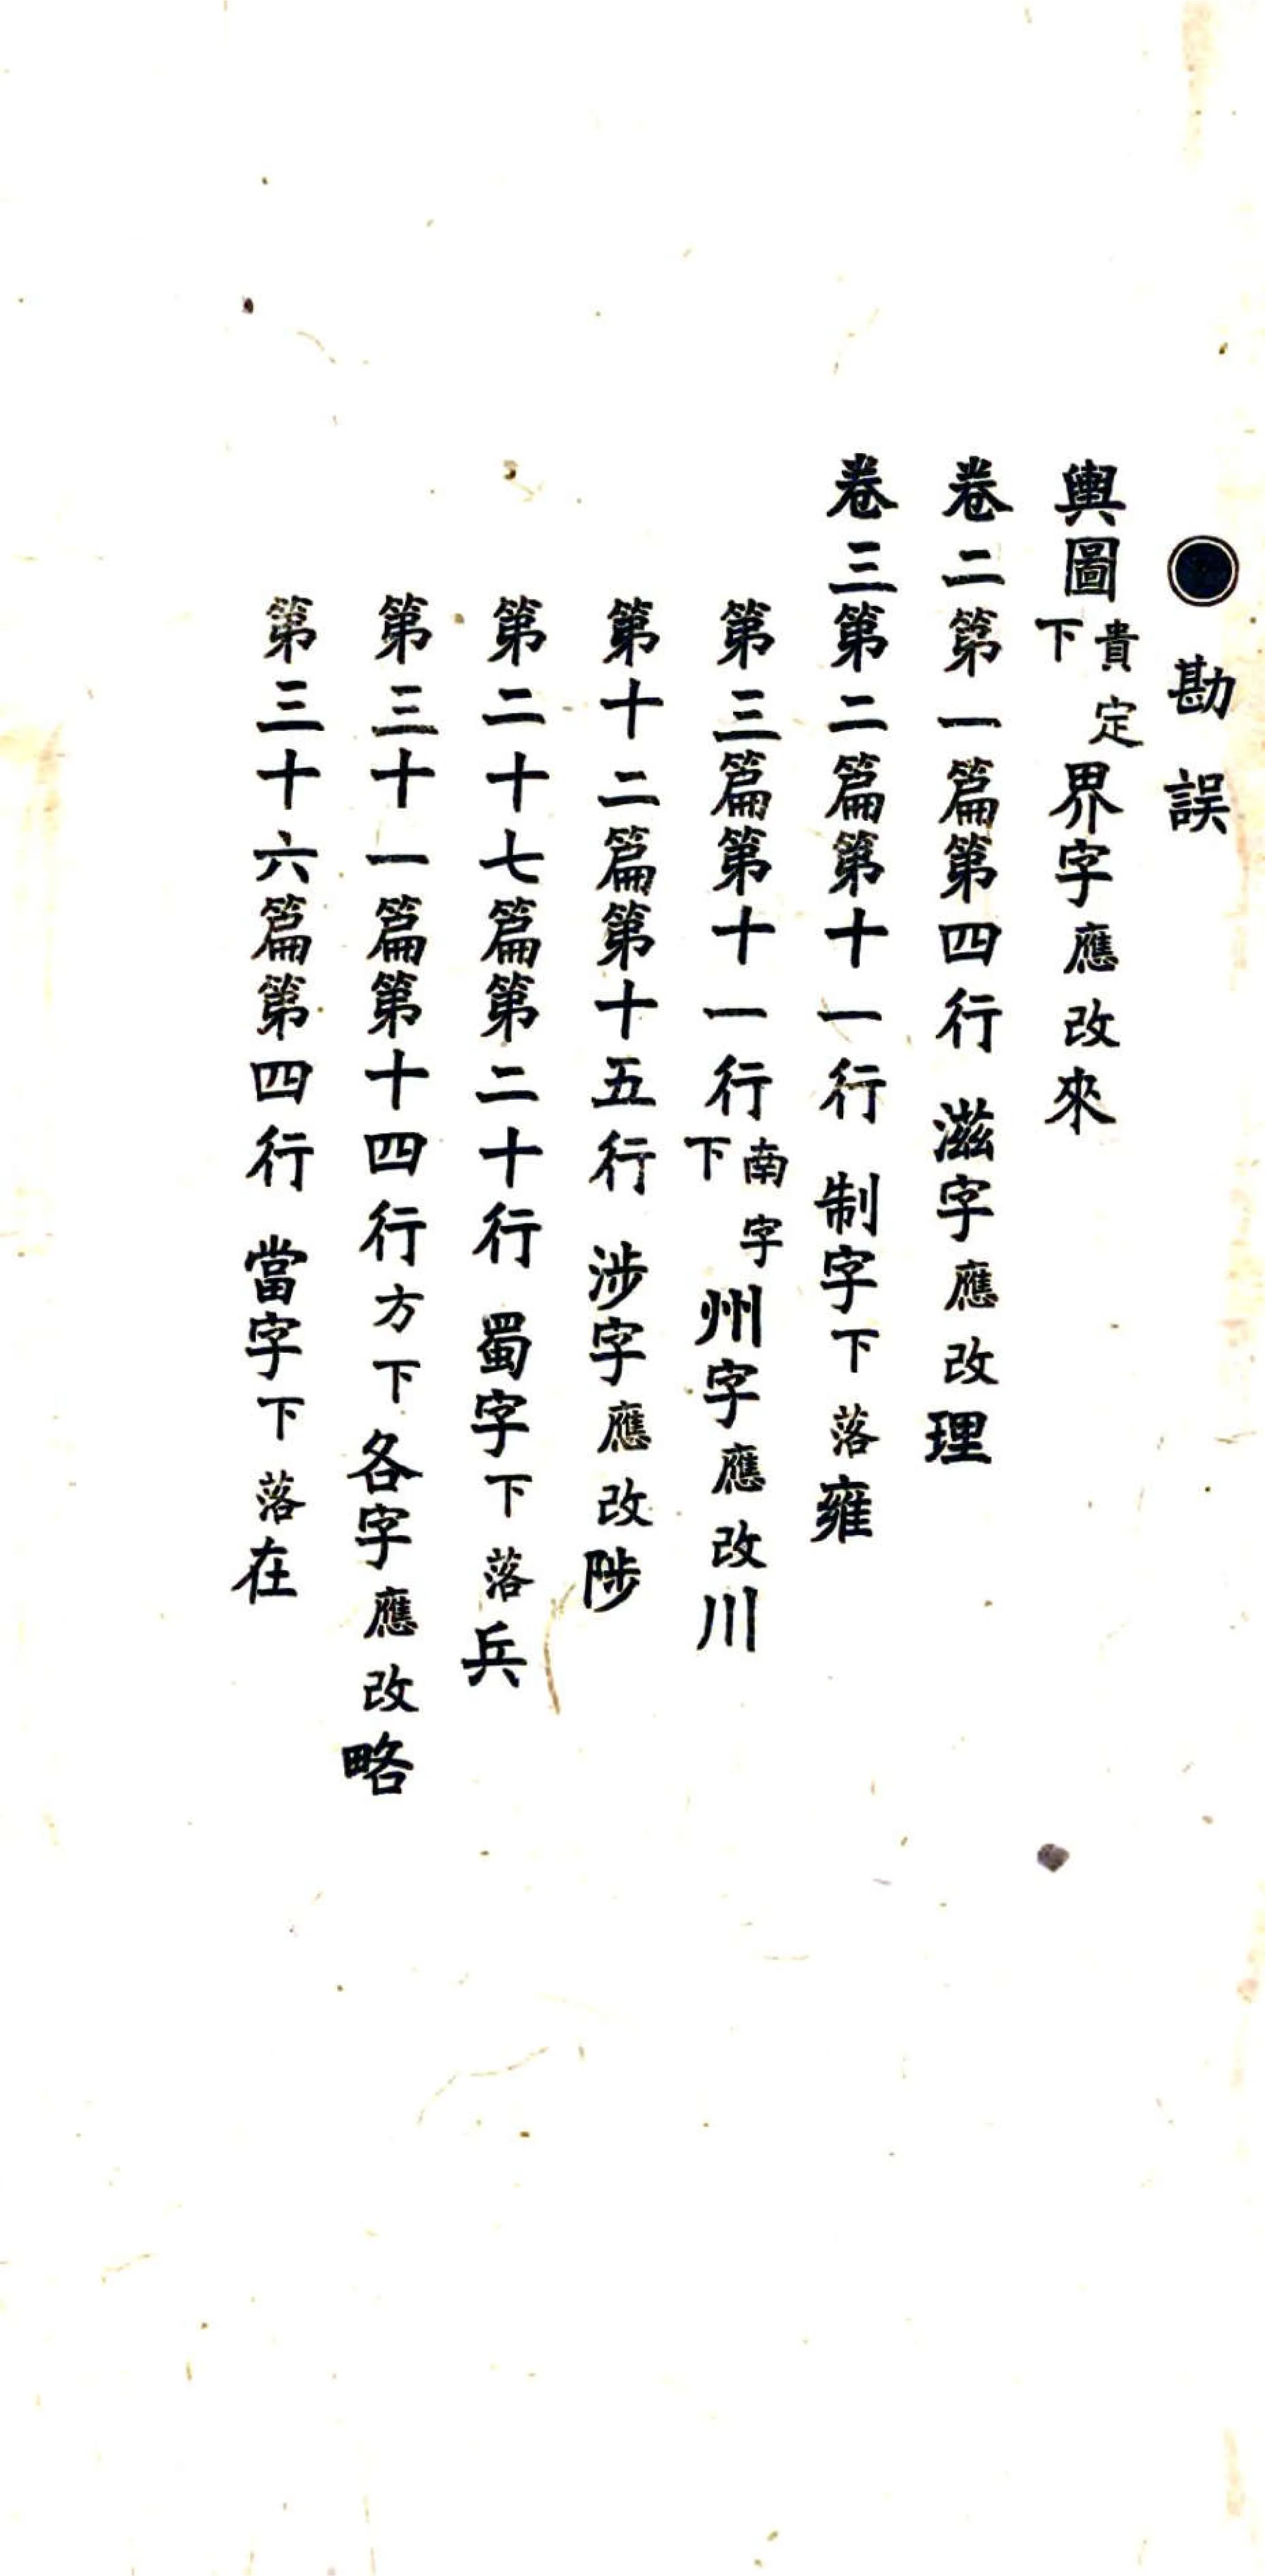 ●勘誤
輿圖貴定下界字應改來
卷二第一篇第四行 滋字應改理
卷三第二篇第十一行 制字下落雍
第三篇第十一行南字下州字應改川
第十二篇第十五行 涉字應改陟
第二十七篇第二十行 蜀字下落兵
第三十一篇第十四行方下各字應改略
第三十六篇第四行 當字下落在